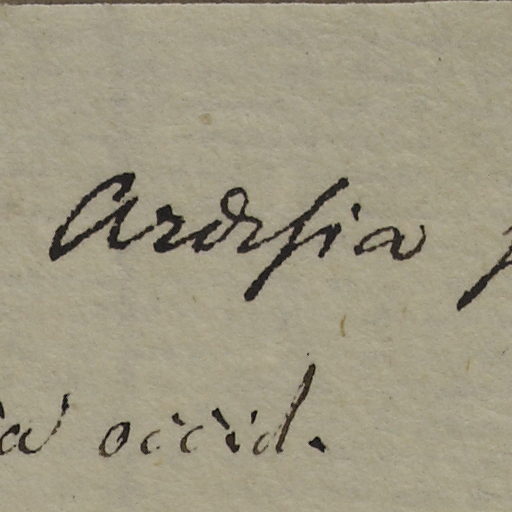 Ardisia
occid.